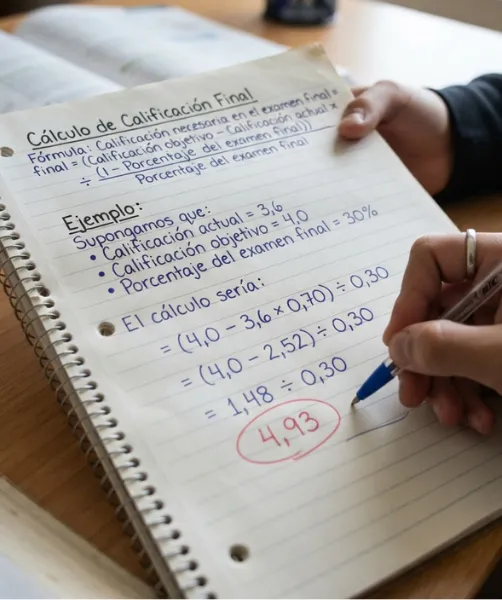 Cálculo de Calificación Final
Fórmula: Calificación necesaria en el examen final =
final = (Calificación objetivo – Calificación actual ×
÷ (1 – Porcentaje del examen final))
Porcentaje del examen final
Ejemplo:
Supongamos que:
• Calificación actual = 3,6
• Calificación objetivo = 4,0
• Porcentaje del examen final = 30%
El cálculo sería:
= (4,0 – 3,6 × 0,70) ÷ 0,30
= (4,0 – 2,52) ÷ 0,30
= 1,48 ÷ 0,30
4,93